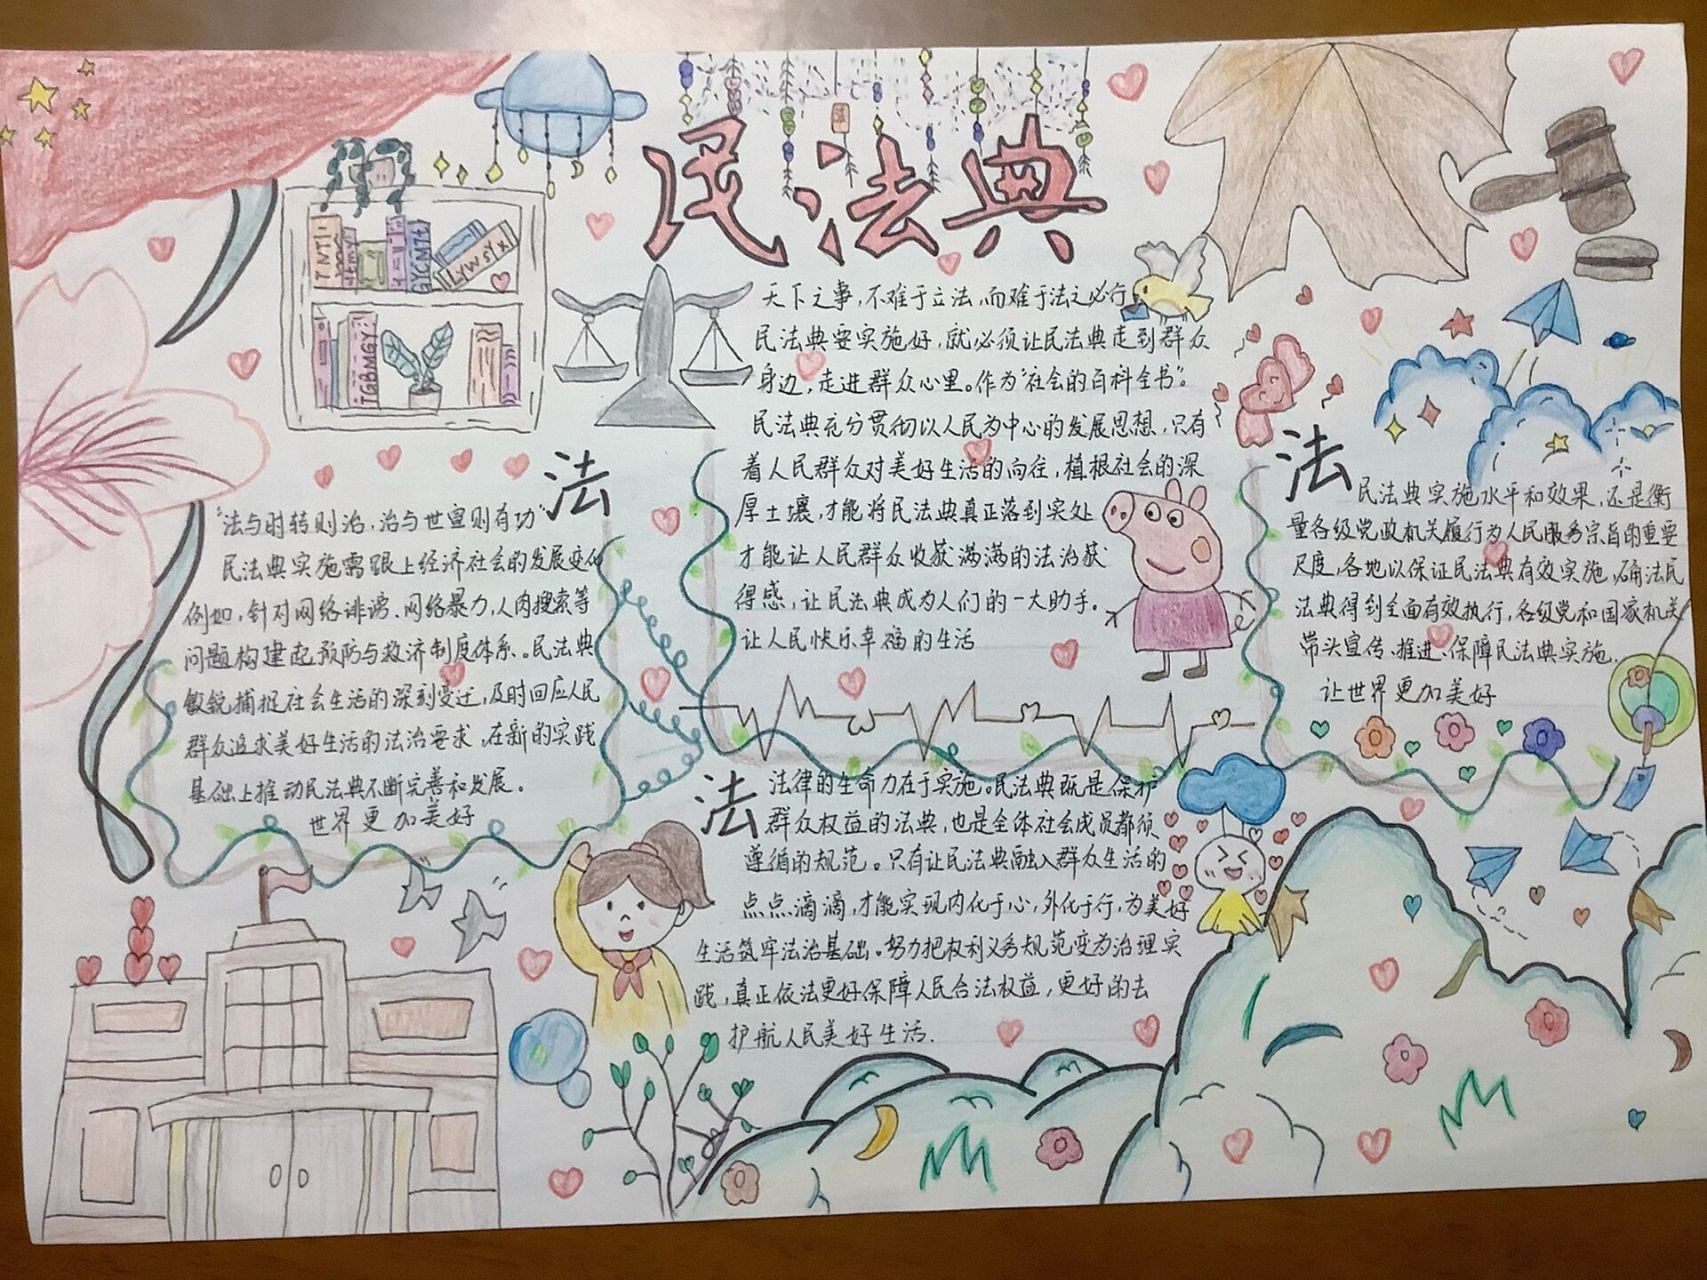 民法典
TNTL
YCM7t
LYWSYX
TGBMGY
天下之事，不难于立法，而难于法之必行
民法典要实施好，就必须让民法典走到群众
身边，走进群众心里。作为“社会的百科全书”。
民法典充分贯彻以人民为中心的发展思想，只有
着人民群众对美好生活的向往，植根社会的深
厚土壤，才能将民法典真正落到实处
才能让人民群众收获满满的法治获
得感，让民法典成为人们的一大助手。
让人民快乐幸福的生活
法
“法与时转则治，治与世宜则有功”
民法典实施需跟上经济社会的发展变化
例如，针对网络诽谤、网络暴力，人肉搜索等
问题构建起预防与救济制度体系。民法典
敏锐捕捉社会生活的深刻变迁，及时回应人民
群众追求美好生活的法治要求，在新的实践
基础上推动民法典不断完善和发展。
世界更加美好
法
民法典实施水平和效果，还是衡
量各级党政机关履行为人民服务宗旨的重要
尺度，各地以保证民法典有效实施，确法民
法典得到全面有效执行，各级党和国家机关
带头宣传、推进、保障民法典实施．
让世界更加美好
法
法律的生命力在于实施。民法典既是保护
群众权益的法典，也是全体社会成员都须
遵循的规范。只有让民法典融入群众生活的
点点滴滴，才能实现内化于心，外化于行，为美好
生活筑牢法治基础。努力把权利义务规范变为治理实
践，真正依法更好保障人民合法权益，更好的去
护航人民美好生活．